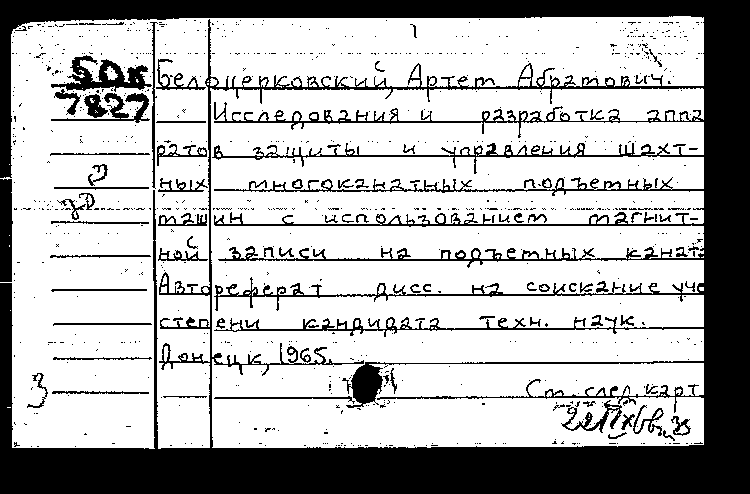 50к
7827
Белоцерковский, Артем Абрамович.
Исследования и разработка аппа
ратов защиты и управления шахт-
ных многоканатных подъемных
машин с использованием магнит-
ной записи на подъемных каната
Автореферат дисс. на соискание уче
степени кандидата техн. наук.
Донецк, 1965.
3
Ст. след. карт.